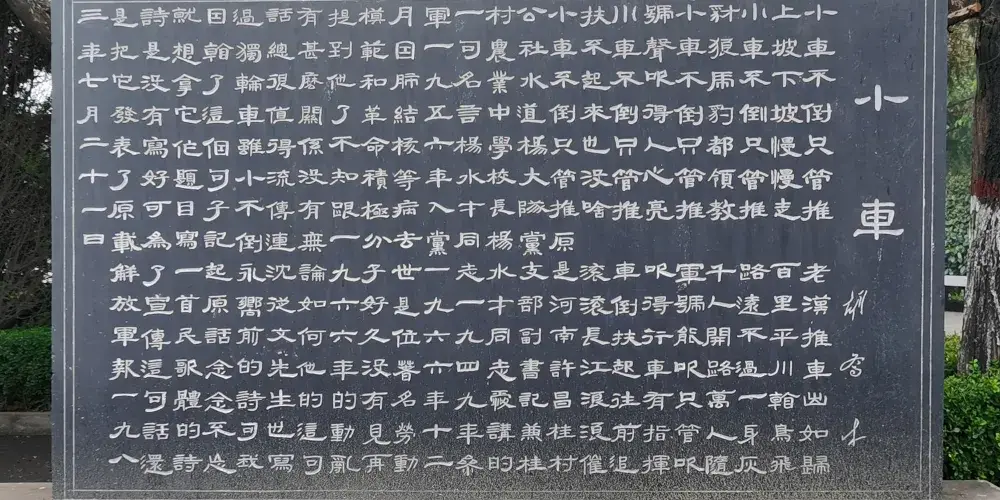 小車
小車不倒只管推 老漢推車山如歸
上坡下坡慢慢走 百里平川輪鳥飛
小車不倒只管推 路遠不過一身灰
豺狼虎豹都領教 千人開路萬人隨
小車不倒只管推 軍號能吹只管吹
號聲吹得人心亮 吹得行車有指揮
小車不倒只管推 車倒扶起往前追
扶不起來也沒啥 滾滾長江浪浪催
小車不倒只管推 原是河南許昌桂村
公社水道楊大隊黨支部副書記兼桂
村農業中學校長楊水才同志愛講的
一句名言楊水才同志一九四九年參
軍一九五六年入黨一九六六年十二
月因肺結核等病去世是位著名勞動
模範和革命積極分子好久沒有見再
提到他了不知跟一九六六年的動亂
有甚麼關係沒有無論如何他的這句
話總很值得流傳連沈從文先生也寫
過獨輪車雖小不倒永嚮前的詩句我
因為了這個句子記起原話念念不忘
就想拿它作題目寫一首民歌體的詩
詩是沒有寫好可為了宣傳這句話還
是把它發表了原載解放軍報一九八
三年七月二十一日